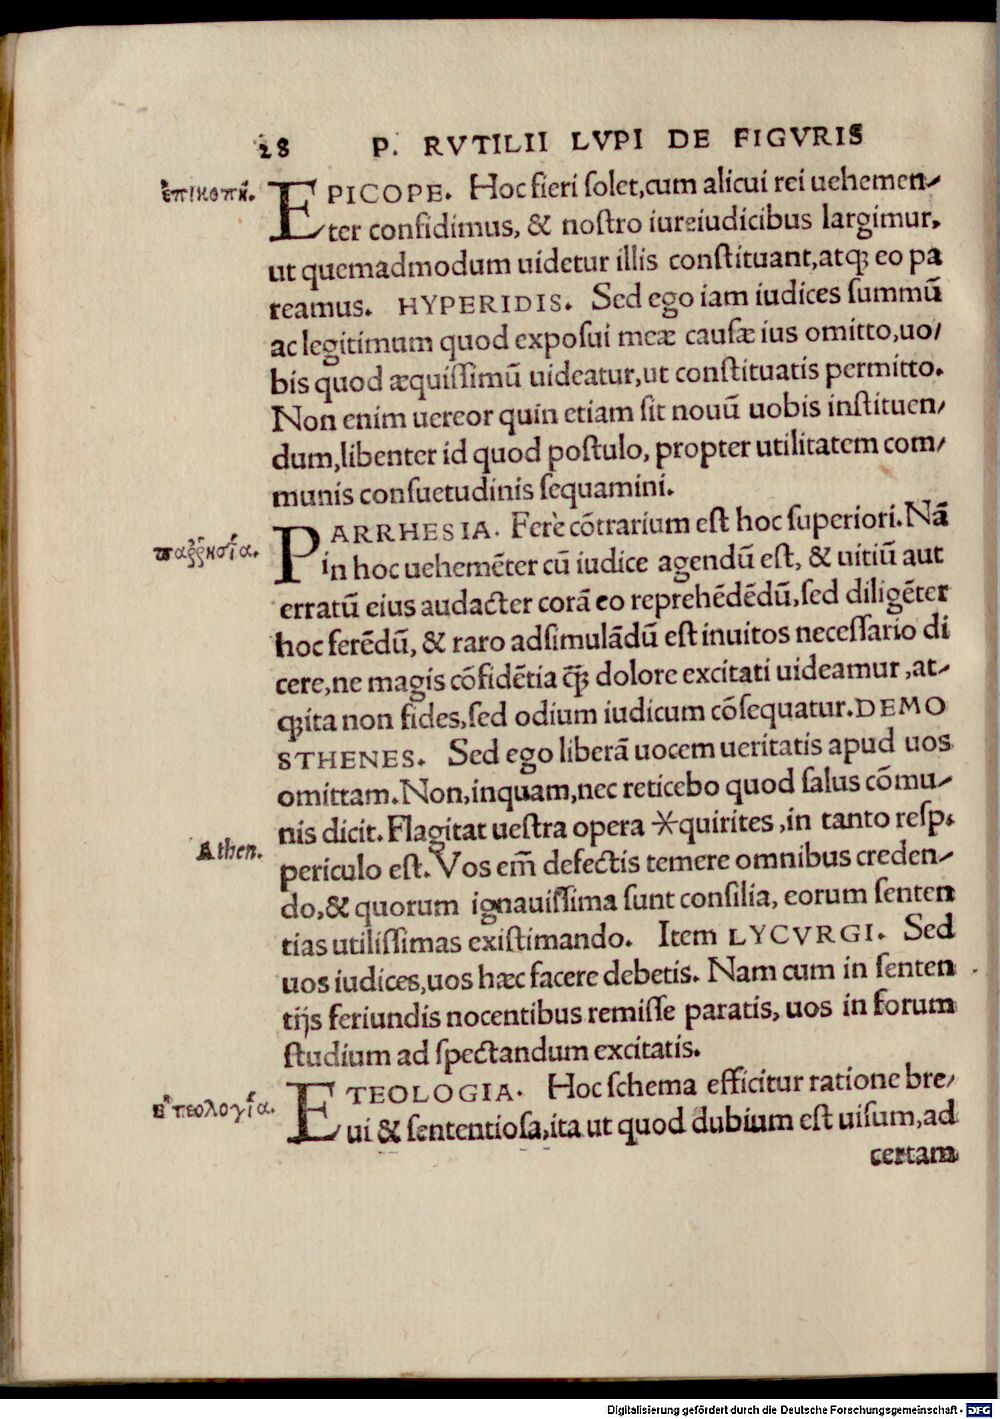 28 P. RVTILII LVPI DE FIGVRIS
ἐπικοπή.
EPICOPE. Hoc fieri solet,cum alicui rei uehemen-
ter confidimus, & nostro iureiudicibus largimur,
ut quemadmodum uidetur illis constituant,atq; eo pa
reamus. HYPERIDIS. Sed ego iam iudices summũ
ac legitimum quod exposui meæ causæ ius omitto,uo/
bis quod æquissimũ uideatur,ut constituatis permitto.
Non enim uereor quin etiam sit nouũ uobis instituen/
dum,libenter id quod postulo, propter utilitatem com/
munis consuetudinis sequamini.
παῤῥησία.
PARRHESIA. Ferè cõtrarium est hoc superiori.Nã
in hoc uehemẽter cũ iudice agendũ est, & uitiũ aut
erratũ eius audacter corã eo reprehẽdẽdũ,sed diligẽter
hoc ferẽdũ, & raro adsimulãdũ est inuitos necessario di
cere,ne magis cõfidẽtia q̃; dolore excitati uideamur ,at-
q;ita non fides,sed odium iudicum cõsequatur.DEMO
STHENES. Sed ego liberã uocem ueritatis apud uos
omittam.Non,inquam,nec reticebo quod salus cõmu-
nis dicit. Flagitat uestra opera *quirites ,in tanto resp.
Athen.
periculo est. Vos em̃ defectis temere omnibus creden-
do,& quorum ignauissima sunt consilia, eorum senten
tias utilissimas existimando. Item LYCVRGI. Sed
uos iudices,uos hæc facere debetis. Nam cum in senten
tijs feriundis nocentibus remisse paratis, uos in forum
studium ad spectandum excitatis.
ἐτεολογία.
ETEOLOGIA. Hoc schema efficitur ratione bre/
ui & sententiosa,ita ut quod dubium est uisum,ad
certam
Digitalisierung gefördert durch die Deutsche Forschungsgemeinschaft - DFG